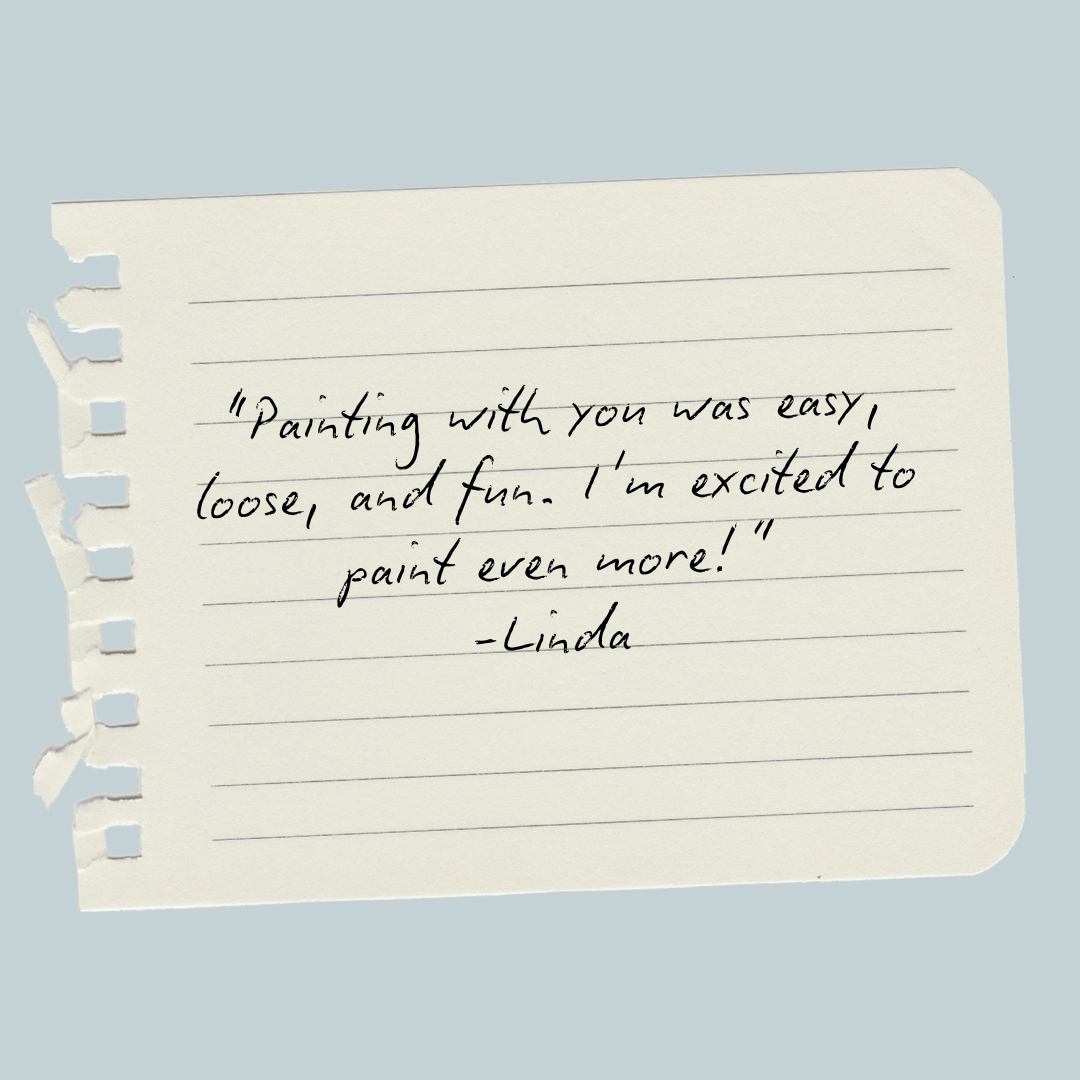 "Painting with you was easy,
loose, and fun. I'm excited to
paint even more!"
-Linda